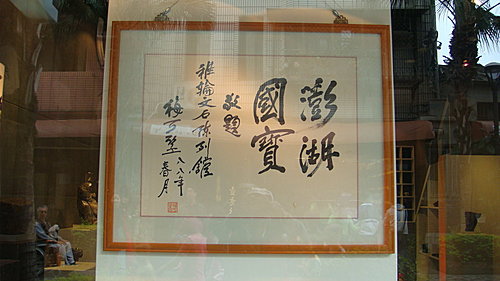 澎湖
國寶
敬題
雅輪文石陳列館
梅可望 八八年
春月